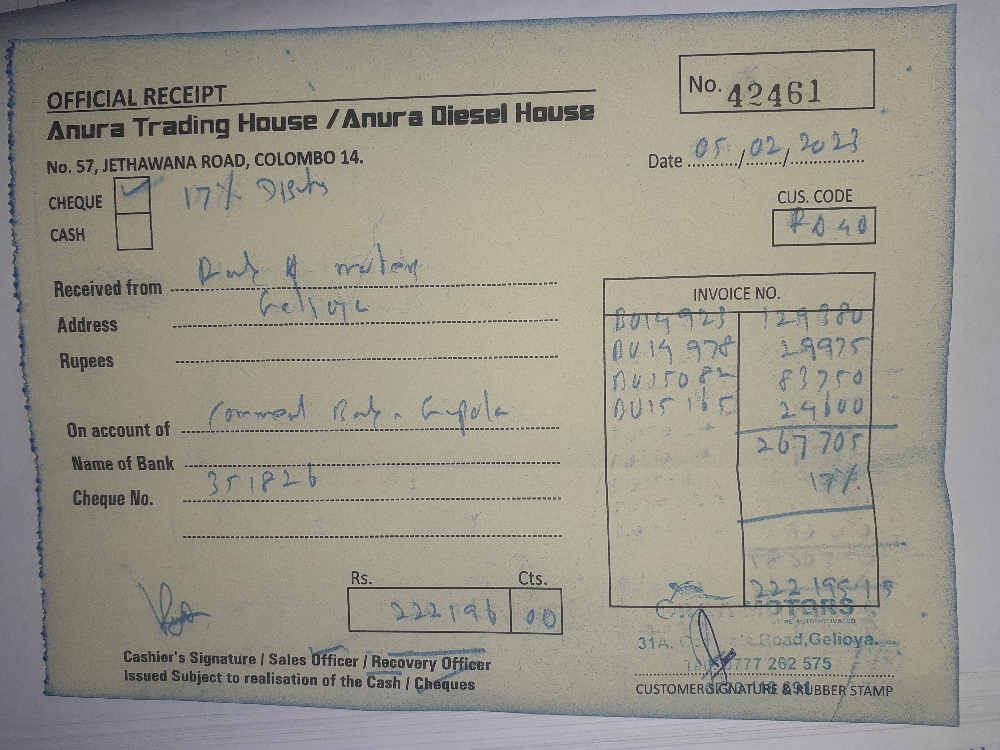 OFFICIAL RECEIPT
No. 42461
Anura Trading House / Anura Diesel House
No. 57, JETHAWANA ROAD, COLOMBO 14.
Date 05/02/2023
CHEQUE 17%
CASH
CUS. CODE
Received from
Address Gelioya
Rupees
On account of
Name of Bank
Cheque No. 351826
INVOICE NO.
DU14923 129380
DU14978 29975
DU15082 83750
DU15165 24600
267705
17%
222195 15
Rs. Cts.
222196 00
MOTORS
31A, Road, Gelioya.
0777 262 575
Cashier's Signature / Sales Officer / Recovery Officer
Issued Subject to realisation of the Cash / Cheques
CUSTOMER SIGNATURE & RUBBER STAMP